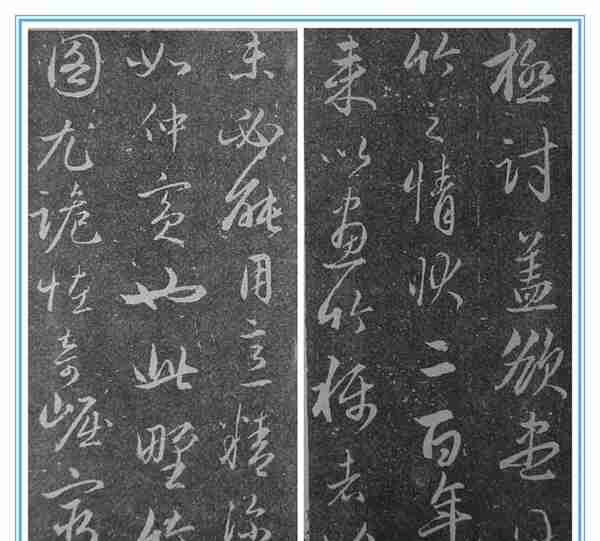 極討蓋欲盡
竹之情狀二百年
来以畫竹稱者
未必能用意精深
如仲賓也此野竹
圖尤詭怪奇崛窮